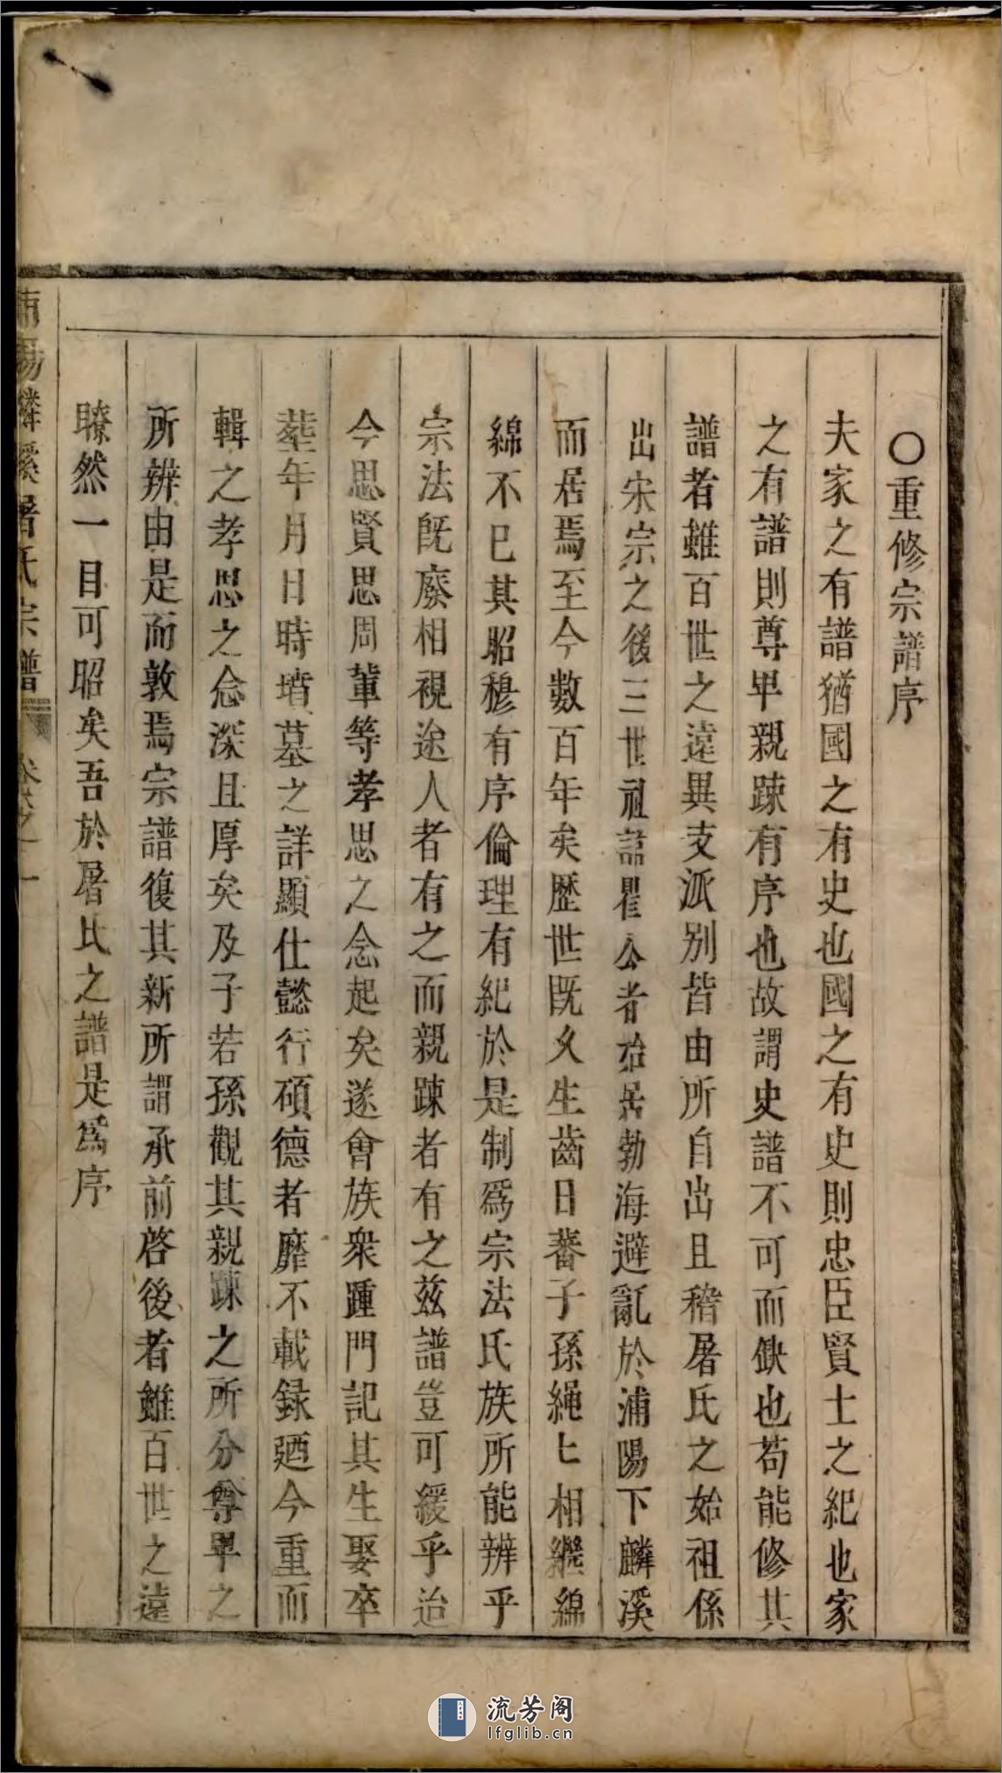 〇重修宗譜序
夫家之有譜猶國之有史也國之有史則忠臣賢士之紀也家
之有譜則尊卑親踈有序也故謂史譜不可而缺也苟能修其
譜者雖百世之遠異支派別皆由所自出且稽屠氏之始祖係
出宋宗之後三世祖諱瞿公者始居勃海避亂於浦陽下麟溪
而居焉至今數百年矣歷世既久生齒日蕃子孫繩匕相繼綿
綿不已其昭穆有序倫理有紀於是制爲宗法氏族所能辨乎
宗法既廢相視途人者有之而親踈者有之茲譜豈可緩乎迨
今思賢思周董等孝思之念起矣遂會族衆踵門記其生娶卒
塟年月日時墳墓之詳顯仕懿行碩德者靡不載録廼今重而
輯之孝思之念深且厚矣及子若孫觀其親踈之所分尊卑之
所辨由是而敦焉宗譜復其新所謂承前啓後者雖百世之遠
瞭然一目可昭矣吾於屠氏之譜是爲序
陽麟溪屠氏宗譜 卷之一
流芳阁
lfglib.cn